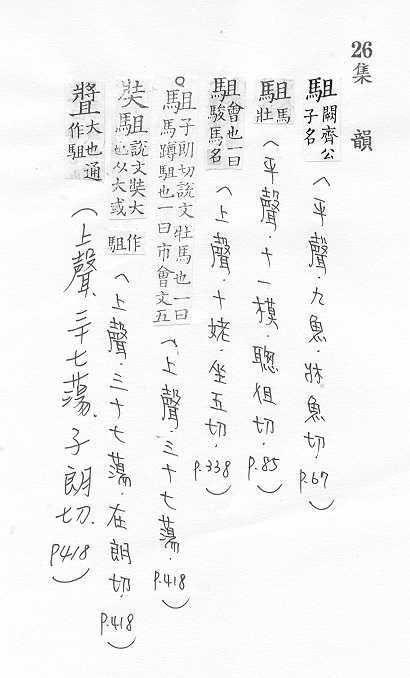 26 集 韻
駔 闕齊公子名 (平聲.九魚.牀魚切. P.67)
駔 馬壯 (平聲.十一模.聰徂切. P.85)
駔 會也一曰駿馬名 (上聲.十姥.坐五切. P.338)
駔 子朗切說文牡馬也一曰馬蹲駔也一曰市會文五 (上聲.三十七蕩. P.418)
奘駔 說文奘大也从大或作駔 (上聲.三十七蕩.在朗切. P.418)
大也通作駔 (上聲.三十七蕩.子朗切. P418)